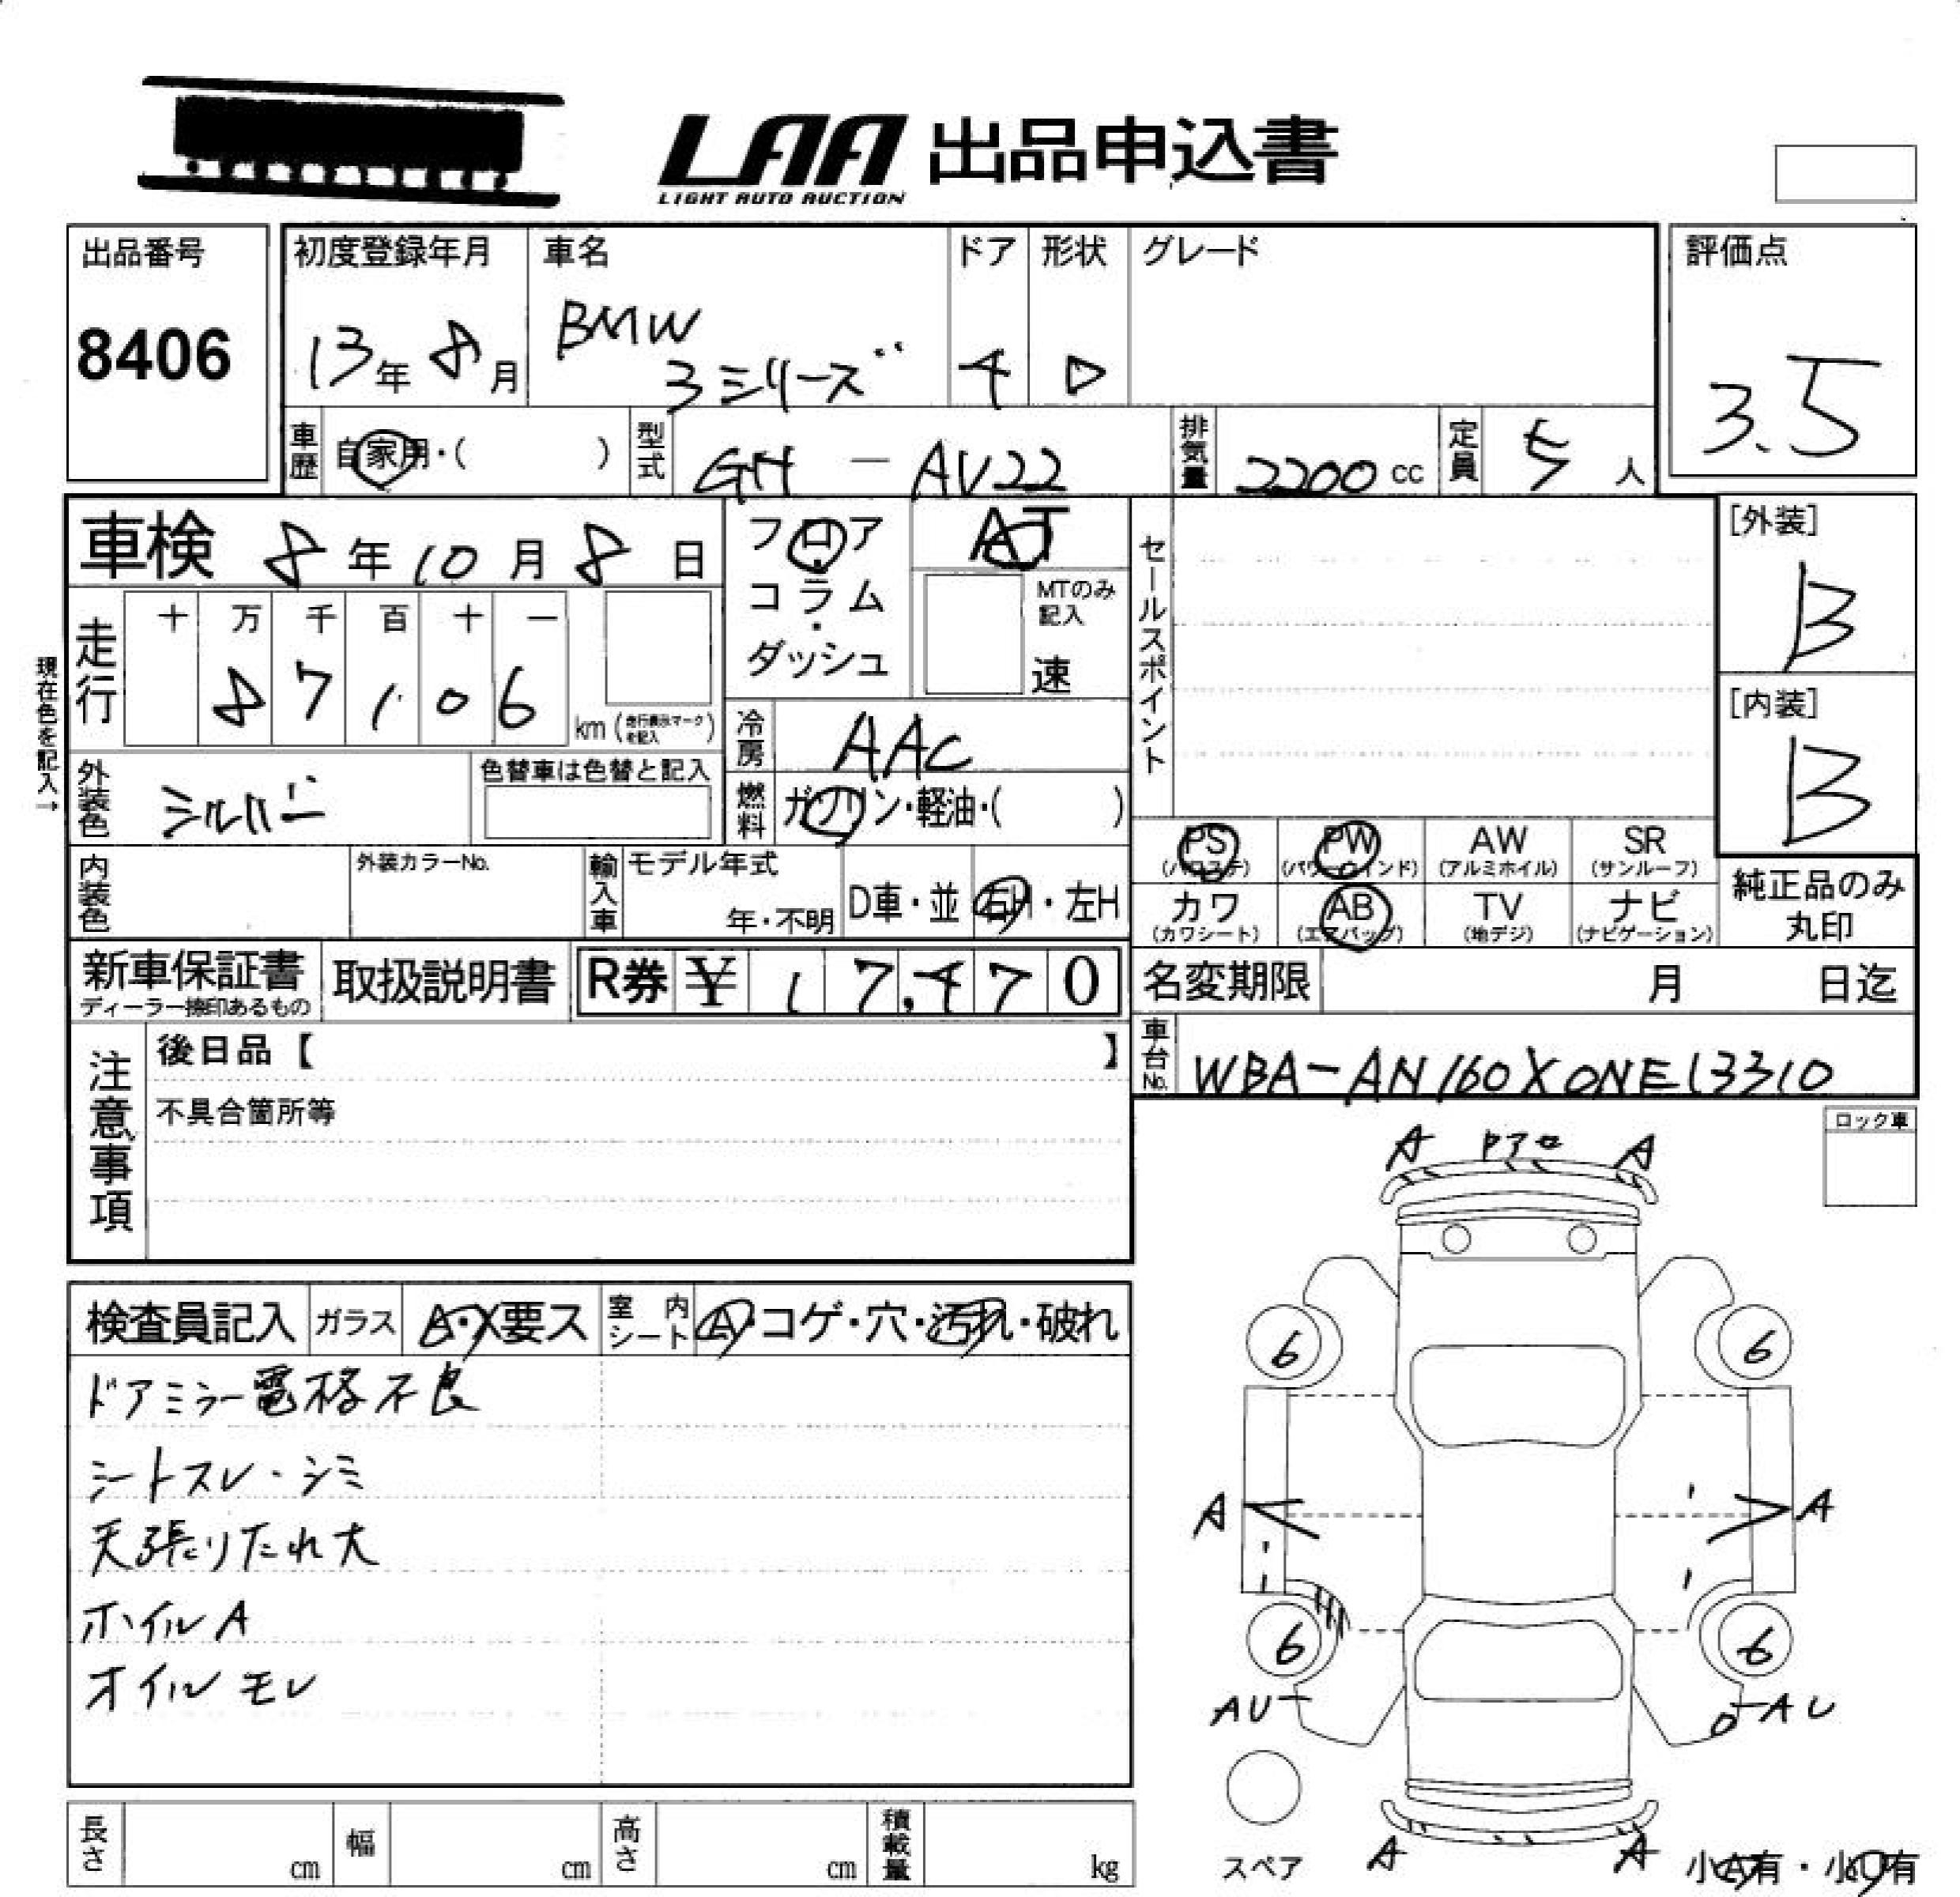 LAA 出品申込書
LIGHT AUTO AUCTION
出品番号
8406
初度登録年月
13年 8月
車名
BMW
3シリーズ
ドア
4
形状
D
グレード
評価点
3.5
車歴 自家用・( )
型式 GH - AV22
排気量 2200 cc
定員 5 人
車検 8年10月8日
フロア
・
コラム
・
ダッシュ
AT
MTのみ
記入
速
セールスポイント
[外装]
B
[内装]
B
現在色を記入→
走行
十 万 千 百 十 一
8 7 1 0 6
km (走行表示マークを記入)
冷房 AAC
外装色 シルバー
色替車は色替と記入
燃料 ガソリン・軽油・( )
PS
(パワステ)
PW
(パワーウインド)
AW
(アルミホイル)
SR
(サンルーフ)
カワ
(カワシート)
AB
(エアバッグ)
TV
(地デジ)
ナビ
(ナビゲーション)
純正品のみ
丸印
内装色
外装カラーNo.
輸入車
モデル年式
年・不明
D車・並
右H・左H
新車保証書
ディーラー捺印あるもの
取扱説明書
R券 ¥ 1 7,4 7 0
名変期限 月 日迄
車台No. WBA-AN160X0NE13310
注意事項
後日品【 】
不具合箇所等
ロック車
検査員記入
ガラス A・X要ス
室内シート A・コゲ・穴・汚れ・破れ
ドアミラー電格不良
シートスレ・シミ
天張りたれ大
ホイルA
オイルモレ
A A
6 6
A A
6 6
AU AU
A A
スペア
小A有・小U有
長さ cm
幅 cm
高さ cm
積載量 kg